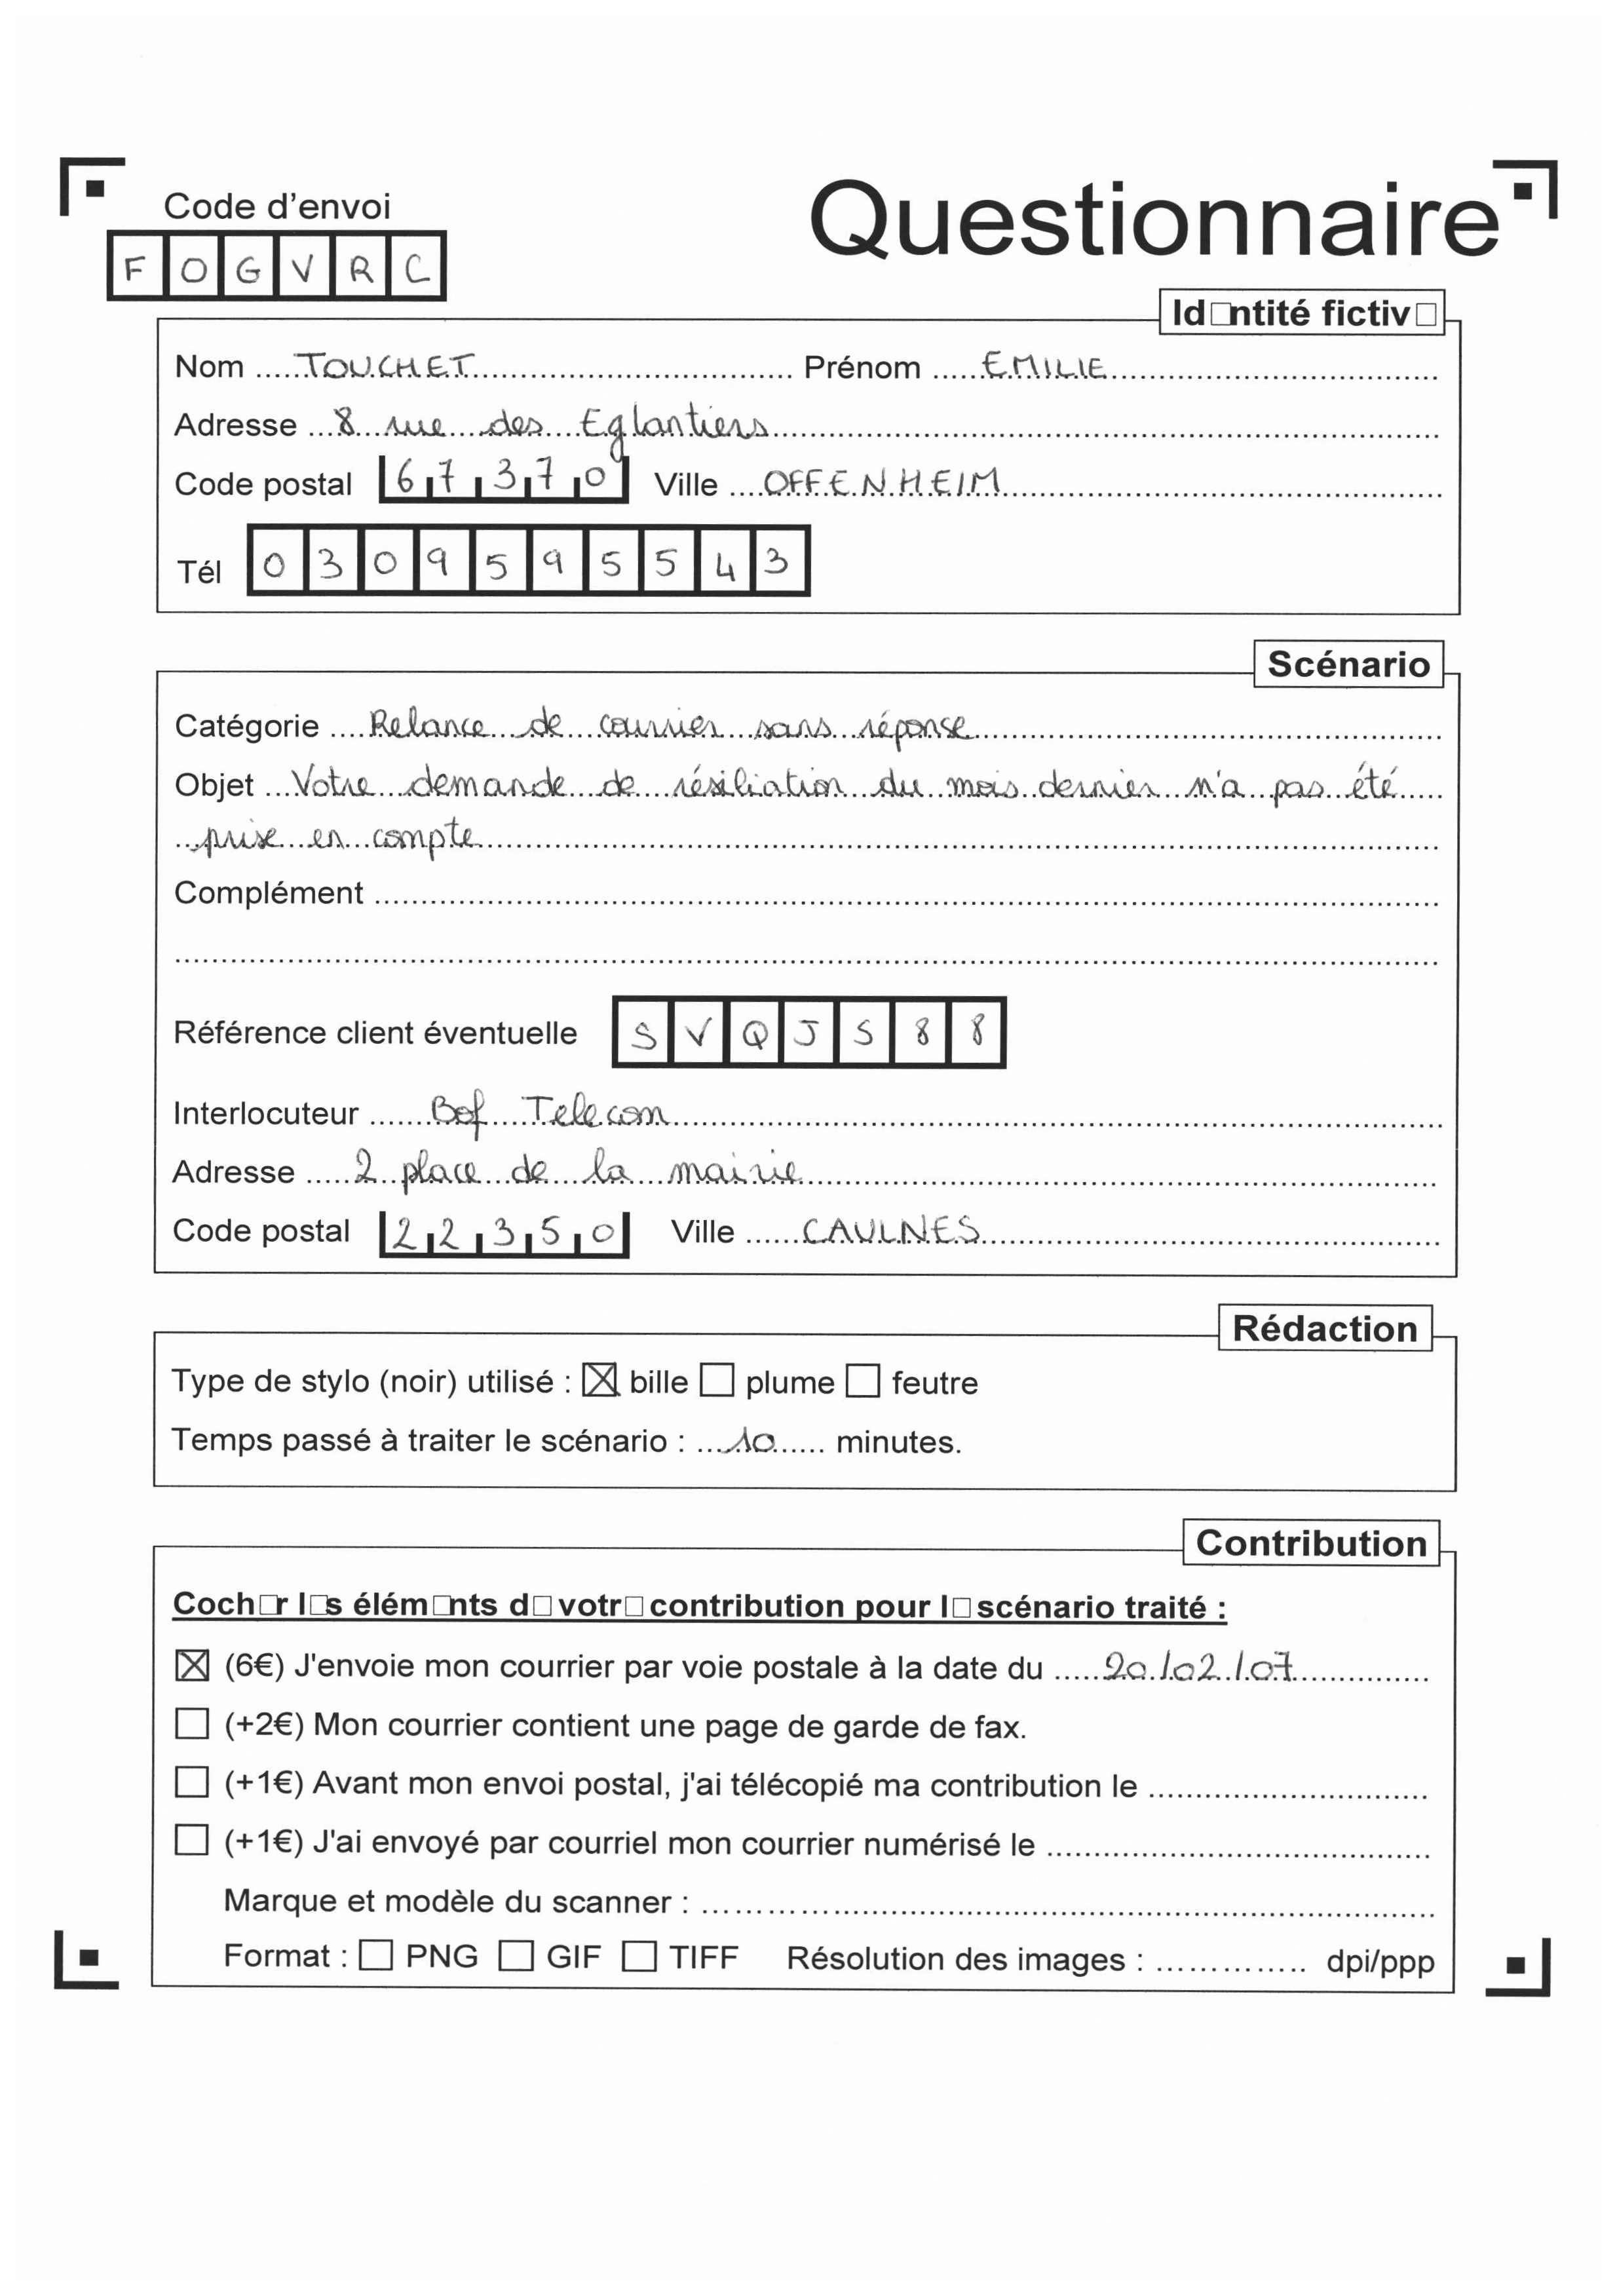 Code d'envoi
Questionnaire
F O G V R C
Id□ntité fictiv□
Nom TOUCHET Prénom EMILIE
Adresse 8 rue des Eglantiers
Code postal 67370 Ville OFFENHEIM
Tél 0309595543
Scénario
Catégorie Relance de courrier sans réponse
Objet Votre demande de résiliation du mois dernier n'a pas été
prise en compte
Complément
Référence client éventuelle SVQJS88
Interlocuteur Bof Telecom
Adresse 2 place de la mairie
Code postal 22350 Ville CAULNES
Rédaction
Type de stylo (noir) utilisé : ☒ bille ☐ plume ☐ feutre
Temps passé à traiter le scénario : 10 minutes.
Contribution
Coch□r l□s élém□nts d□ votr□ contribution pour l□ scénario traité :
☒ (6€) J'envoie mon courrier par voie postale à la date du 20/02/07
☐ (+2€) Mon courrier contient une page de garde de fax.
☐ (+1€) Avant mon envoi postal, j'ai télécopié ma contribution le
☐ (+1€) J'ai envoyé par courriel mon courrier numérisé le
Marque et modèle du scanner :
Format : ☐ PNG ☐ GIF ☐ TIFF Résolution des images : dpi/ppp